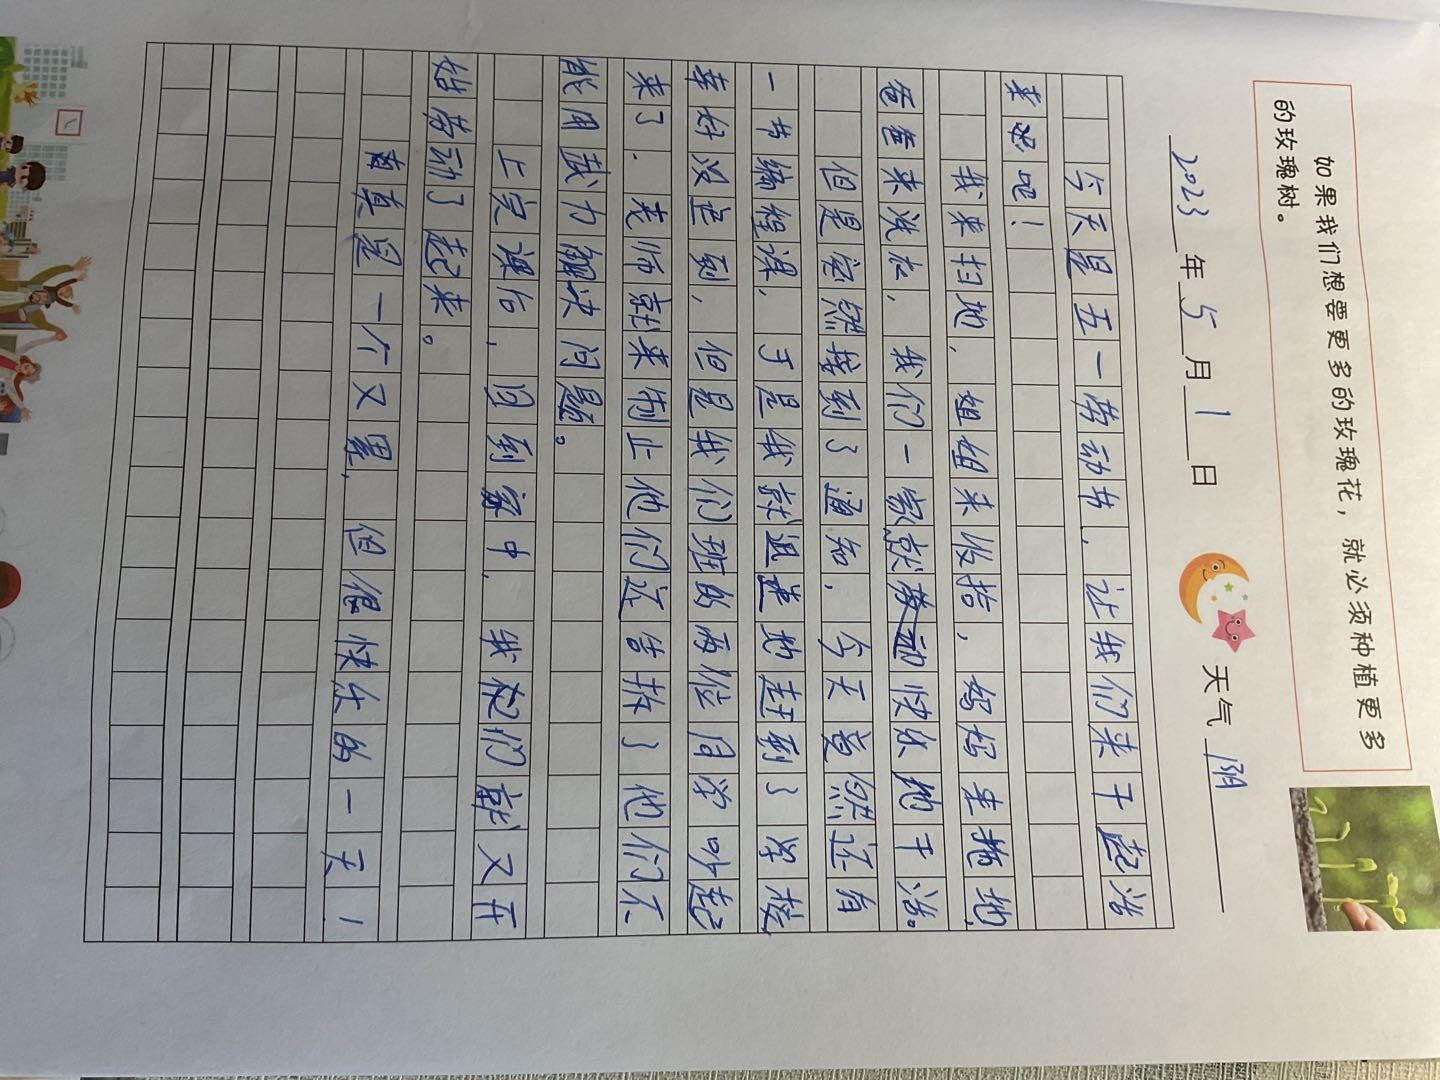 如果我们想要更多的玫瑰花，就必须种植更多
的玫瑰树。
2023年5月1日 天气 阴
今天是五一劳动节，让我们来干起活
来吧！
我来扫地，姐姐来收拾，妈妈来拖地，
爸爸来洗衣，我们一家就劳动快乐地干活。
但是忽然接到了通知，今天竟然还有
一节编程课，于是我就迅速地赶到了学校，
幸好没迟到，但是我们班的两位同学吵起
来了，老师就来制止他们还告拆了他们不
能用武力解决问题。
上完课后，回到家中，我和们就又开
始劳动了起来。
真是一个又累，但很快乐的一天！